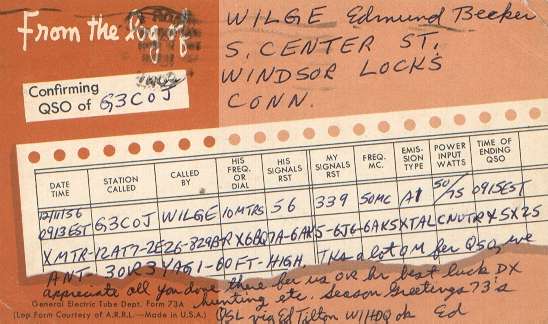 From the log of
W1LGE Edmund Becker
S. CENTER ST.
WINDSOR LOCKS
CONN.
Confirming
QSO of G3COJ
DATE TIME
STATION CALLED
CALLED BY
HIS FREQ. OR DIAL
HIS SIGNALS RST
MY SIGNALS RST
FREQ. MC.
EMIS-SION TYPE
POWER INPUT WATTS
TIME OF ENDING QSO
12/11/56
0913EST G3COJ W1LGE 10MTRS 56 339 50MC A1 50/75 0915EST
XMTR-12AT7-2E26-829B-RX6BQ7A-6AK5-6J6-6AK5XTAL CNVTR XSX25
ANT- 30R3YAG1-60FT-HIGH. Tks a lot OM fer QSO, we
appreciate all you done there fer us OR hr best luck DX
hunting etc. Season Greetings 73's
QSL via Ed Tilton W1HDQ ok Ed
General Electric Tube Dept. Form 73A
(Log Form Courtesy of A.R.R.L.—Made in U.S.A.)